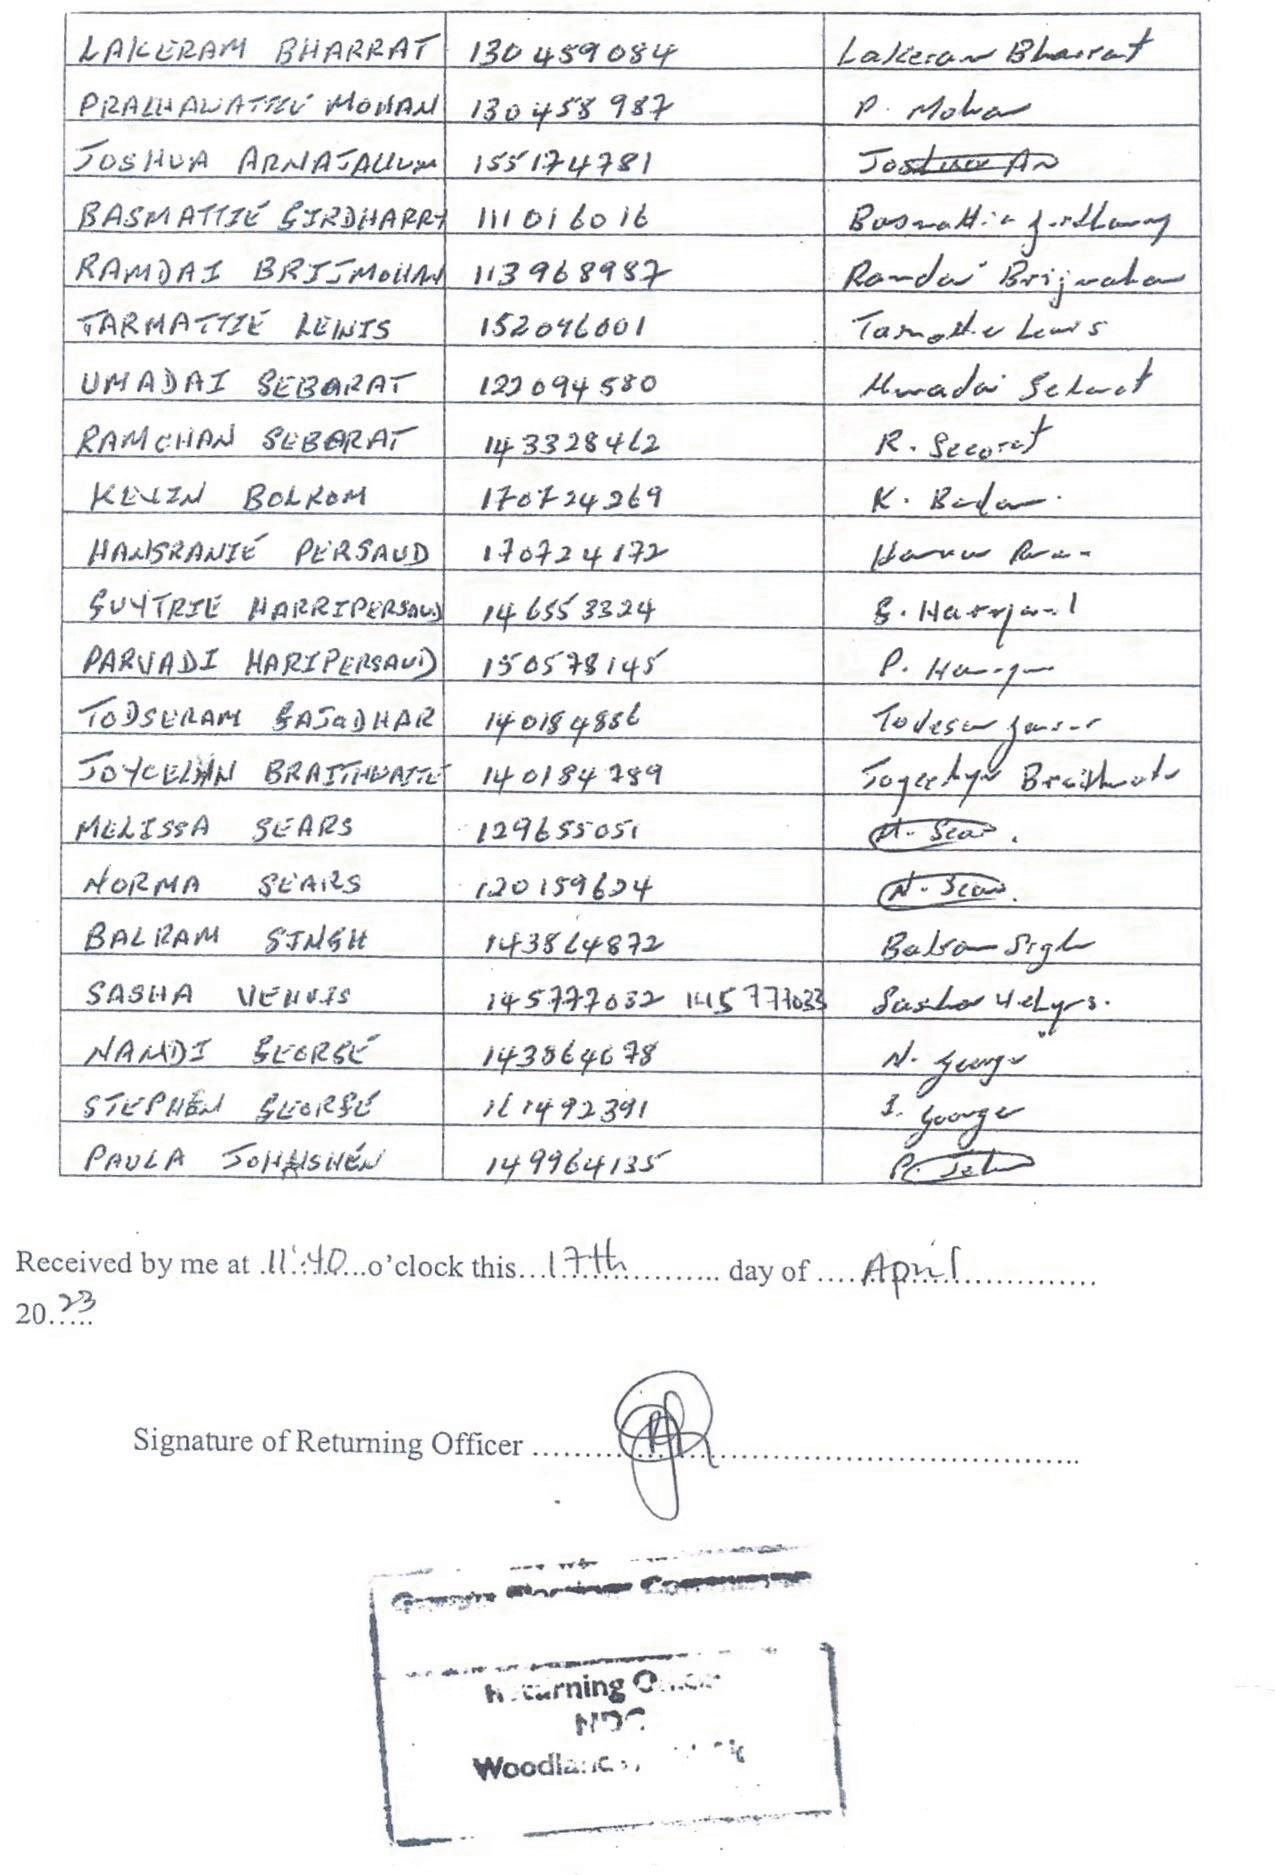 LAKERAM BHARRAT 130459084 Lakeram Bharrat
PRALHAWATTIE MOHAN 130458987 P. Mohan
JOSHUA ARNAJALLUM 155174781
BASMATTIE GIRDHARRY 111016016 Basmattie Girdharry
RAMDAI BRIJMOHAN 113968987 Ramdai Brijmohan
TARMATTIE LEWIS 152096001 Tarmattie Lewis
UMADAI SEBARAT 122094580 Umadai Sebarat
RAMCHAN SEBARAT 143328462 R. Seborat
KEVIN BOLROM 170724269 K.
HANSRANIE PERSAUD 170724172
GUYTRIE HARRIPERSAUD 146553324 G.
PARVADI HARIPERSAUD 150578145 P.
TODSERAM GAJADHAR 140184886
JOYCELYN BRAITHWAITE 140184789 Braithwaite
MELISSA SEARS 129655051 M. Sears
NORMA SEARS 120159624 N. Sears
BALRAM SINGH 143864872 Balram Singh
SASHA 145777032 145777033 Sasha
NAMDI GEORGE 143864678 N. George
STEPHEN GEORGE 161492391 S. George
PAULA JOHNSHEN 149964135 P.
Received by me at 11:40 o'clock this 17th day of April
20 23
Signature of Returning Officer
Returning
NDC